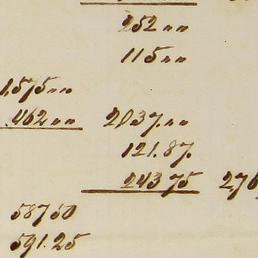 252 "
115 "
1575 "
462 " 2037 "
121.87
243 75 276
587 50
591.25